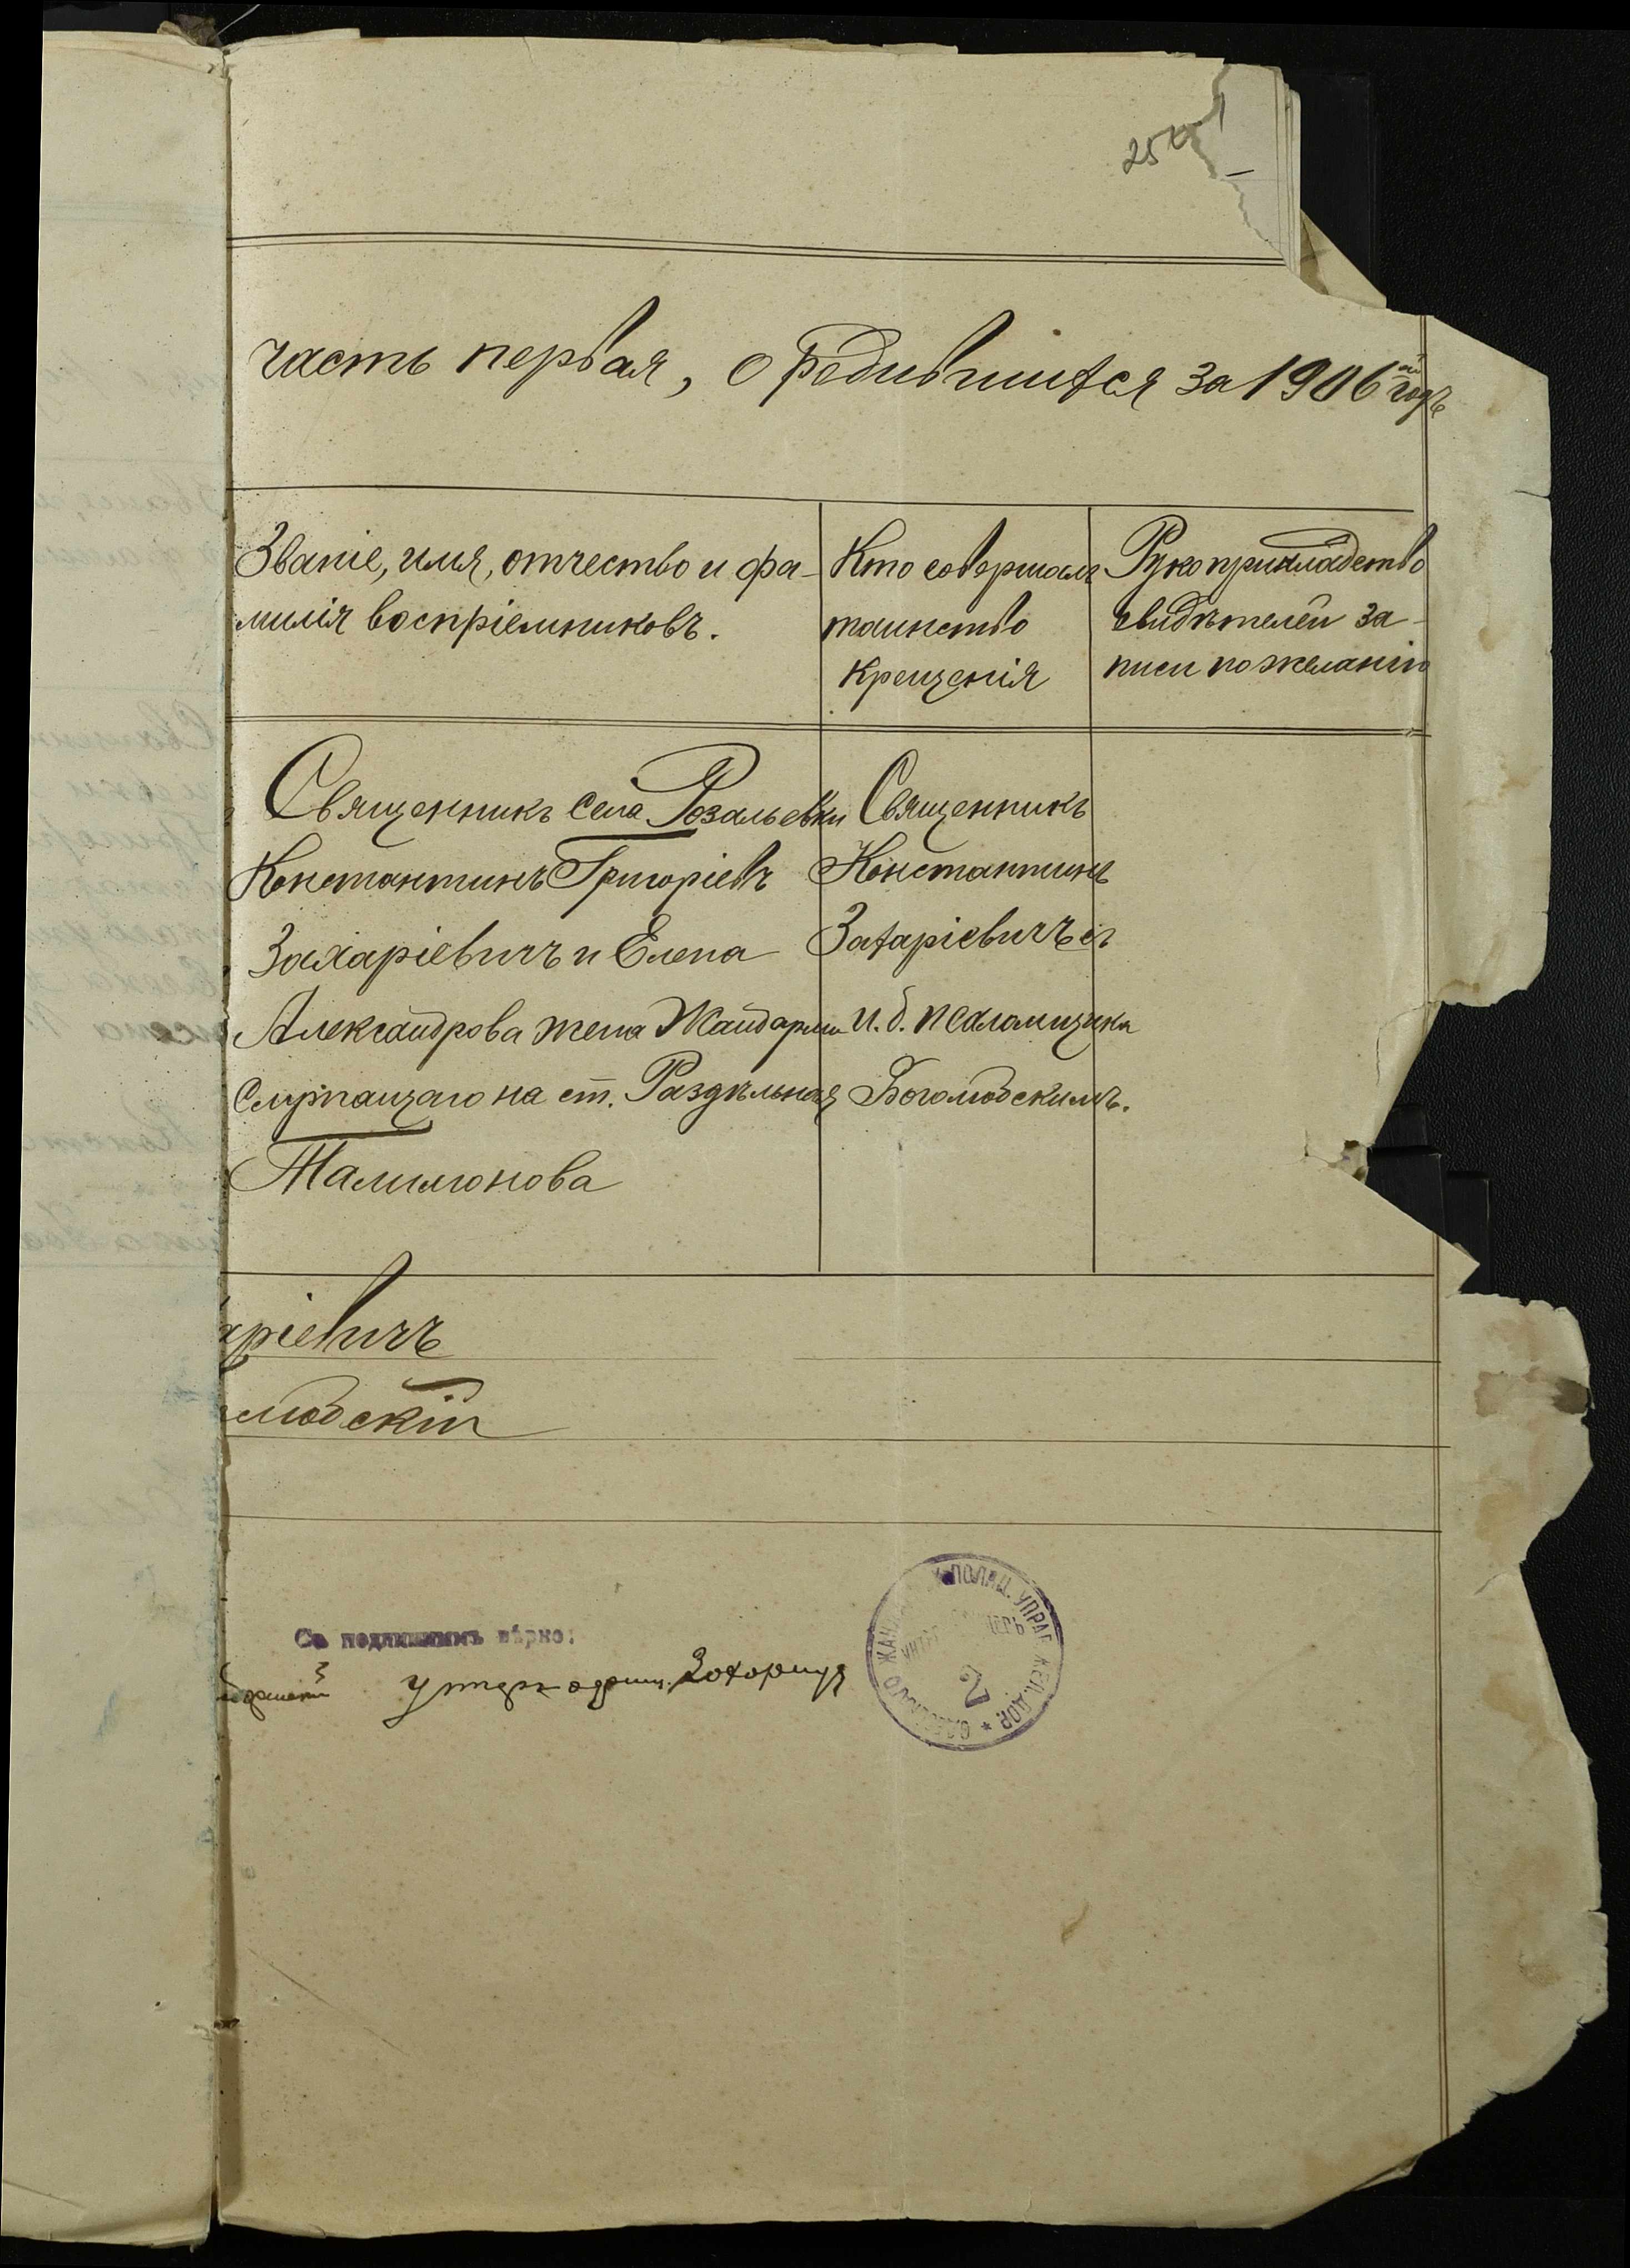 25
часть первая, о родившихся за 1906ой годъ
Званіе, имя, отчество и фа-
милія воспріемниковъ.
Кто совершалъ
таинство
крещенія
Рукоприкладство
свидѣтелей за-
писи по желанію
Священникъ села Розальевки
Константинъ Григоріевъ
Захаріевичъ и Елена
Александрова жена Жандарма
служащаго на ст. Раздѣльная
Талимонова
Священникъ
Константинъ
Захаріевичъ съ
и. д. псаломщика
Боголюбскимъ.
аріевичъ
любскій
Съ подлиннымъ вѣрно:
Унтеръ-офиц.
ПОЛИЦ. УПРАВ. ЖЕЛ. ДОР. * ОДЕССКАГО ЖАН
УНТЕРЪ
2